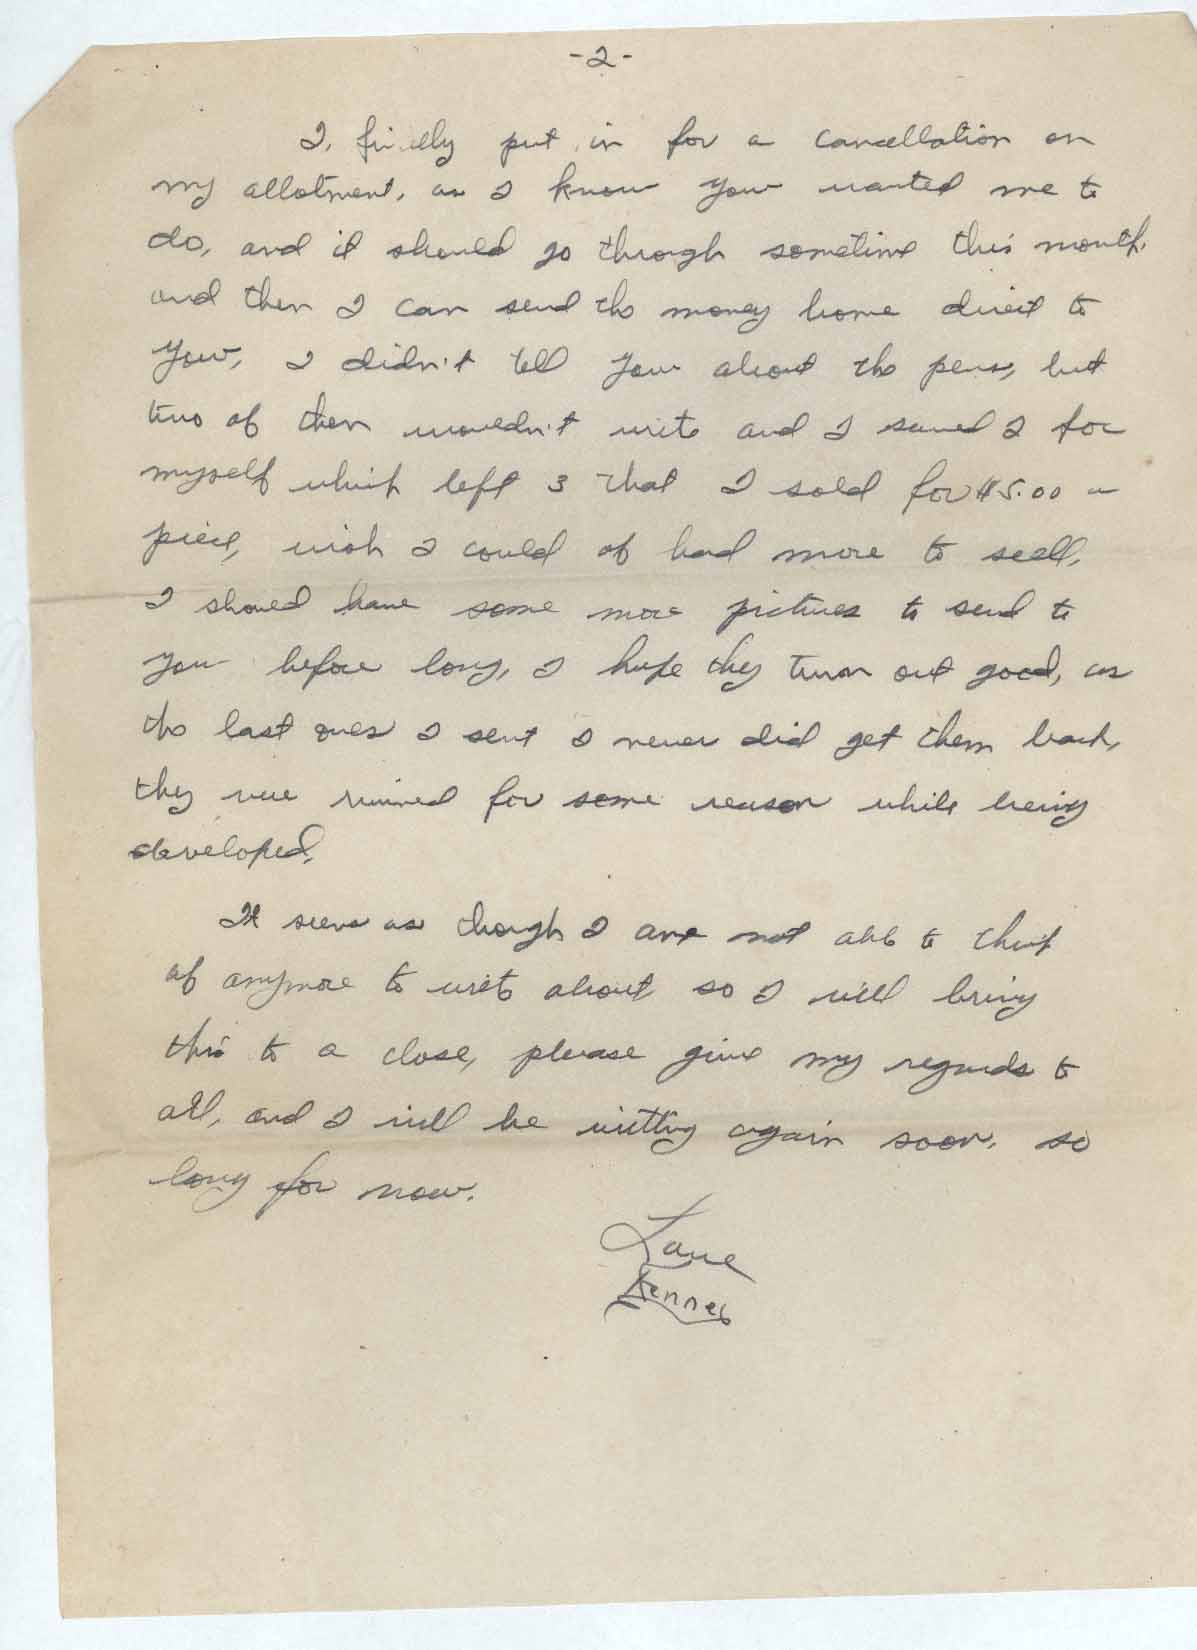 -2-
I, finally put in for a cancellation on
my allotment, as I know you wanted me to
do, and it should go through sometime this month.
and then I can send the money home direct to
you, I didn't tell you about the pens, but
two of them wouldn't write and I saved 2 for
myself which left 3 that I sold for $5.00 a
piece, wish I could of had more to sell,
I should have some more pictures to send to
you before long, I hope they turn out good, as
the last ones I sent I never did get them back,
they were ruined for some reason while being
developed.
It seems as though I am not able to think
of anymore to write about so I will bring
this to a close, please give my regards to
all, and I will be writting again soon. so
long for now.
Love